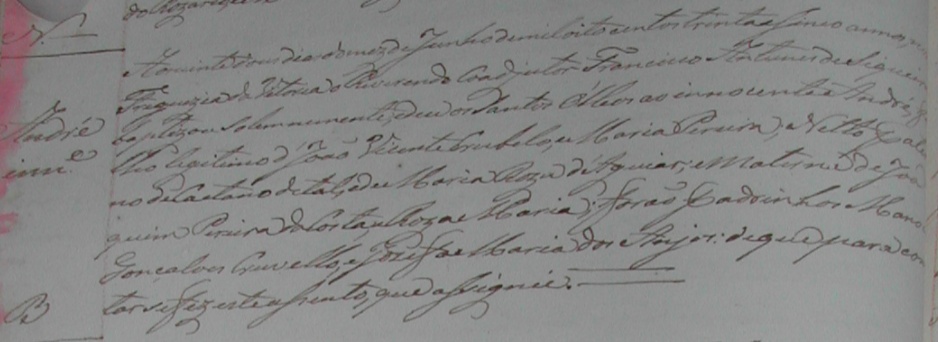 do Rozario
N.
Aos vinte dous dias do mez de Junho de mil oito centos trinta e sinco annos, n
Freguezia da Vitoria o Reverendo Coadjutor Francisco Antunes de Siqueira
André
baptizou solemnemente, deu os Santos Olleos ao innocente André, f
inn.e
lho legitimo d' João Vicente e Maria Pereira; Netto pater
no de Caetano de tal, e de Maria Roza d' Aguiar; e Materno de Joa
quim Pereira da Costa e Roza Maria; forão Padrinhos Mano
Goncalves Cruvello, e Josefa Maria dos Anjos: de que para con
tar se fez este assento, que assignei.
B